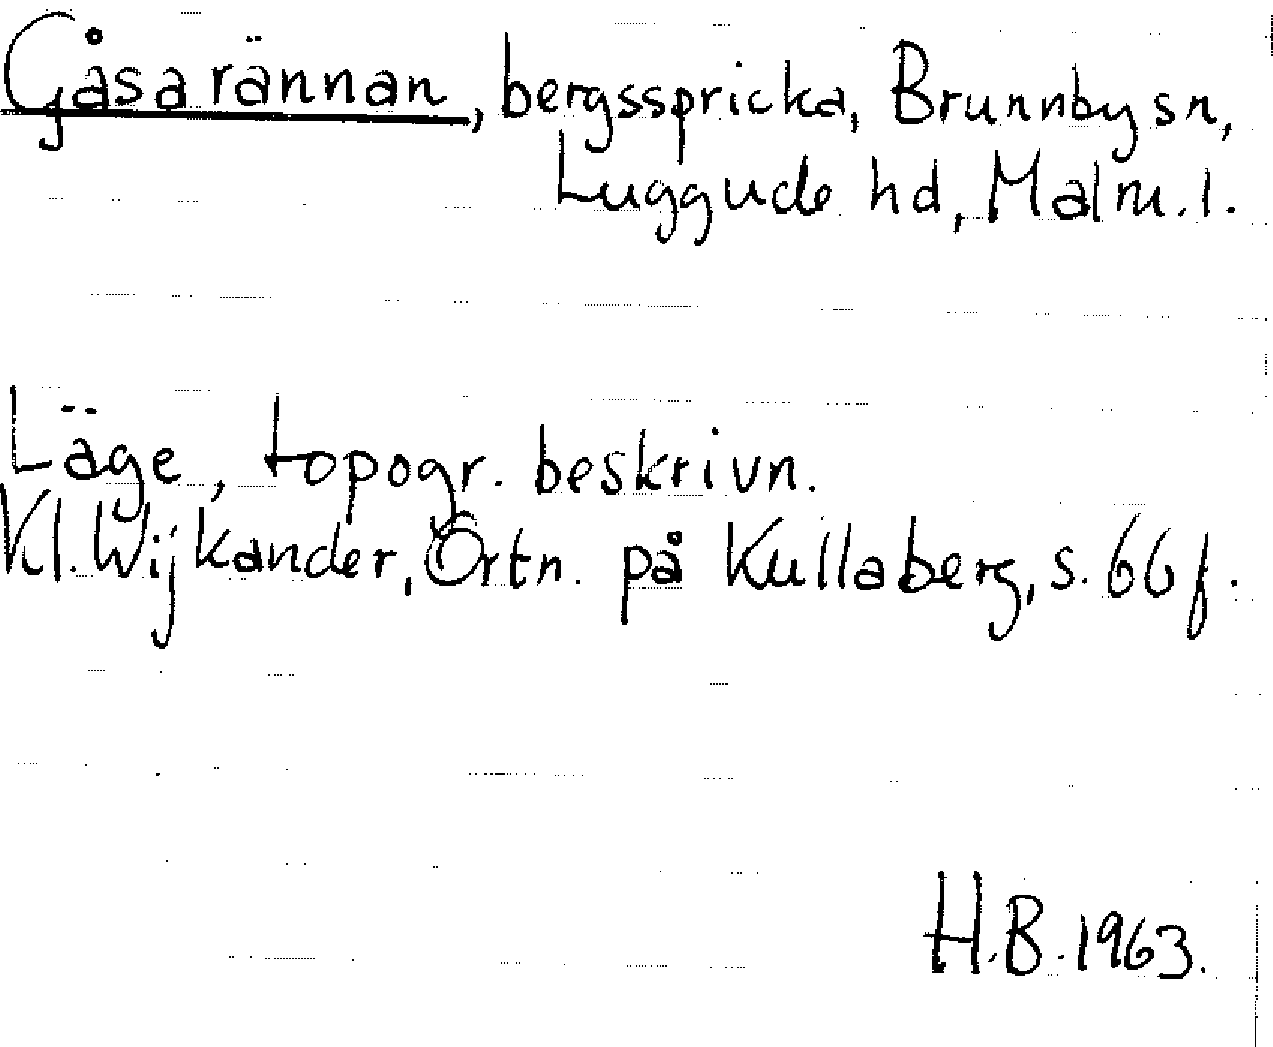 Gåsarännan, bergsspricka, Brunnby sn,
Luggude hd, Malm. l.
Läge, topogr. beskrivn.
Kl. Wijkander, Ortn. på Kullaberg, s. 66 f.
H.B. 1963.